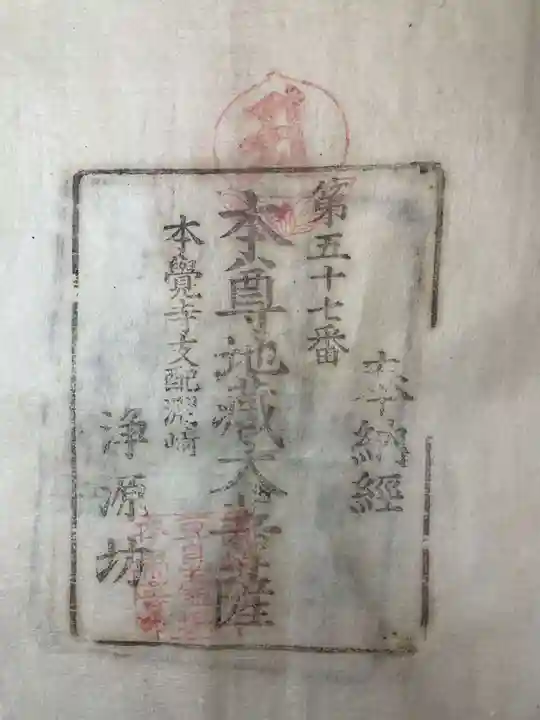 奉納經
第五十七番
本尊地藏大菩薩
本覺寺支配淵崎
浄源坊